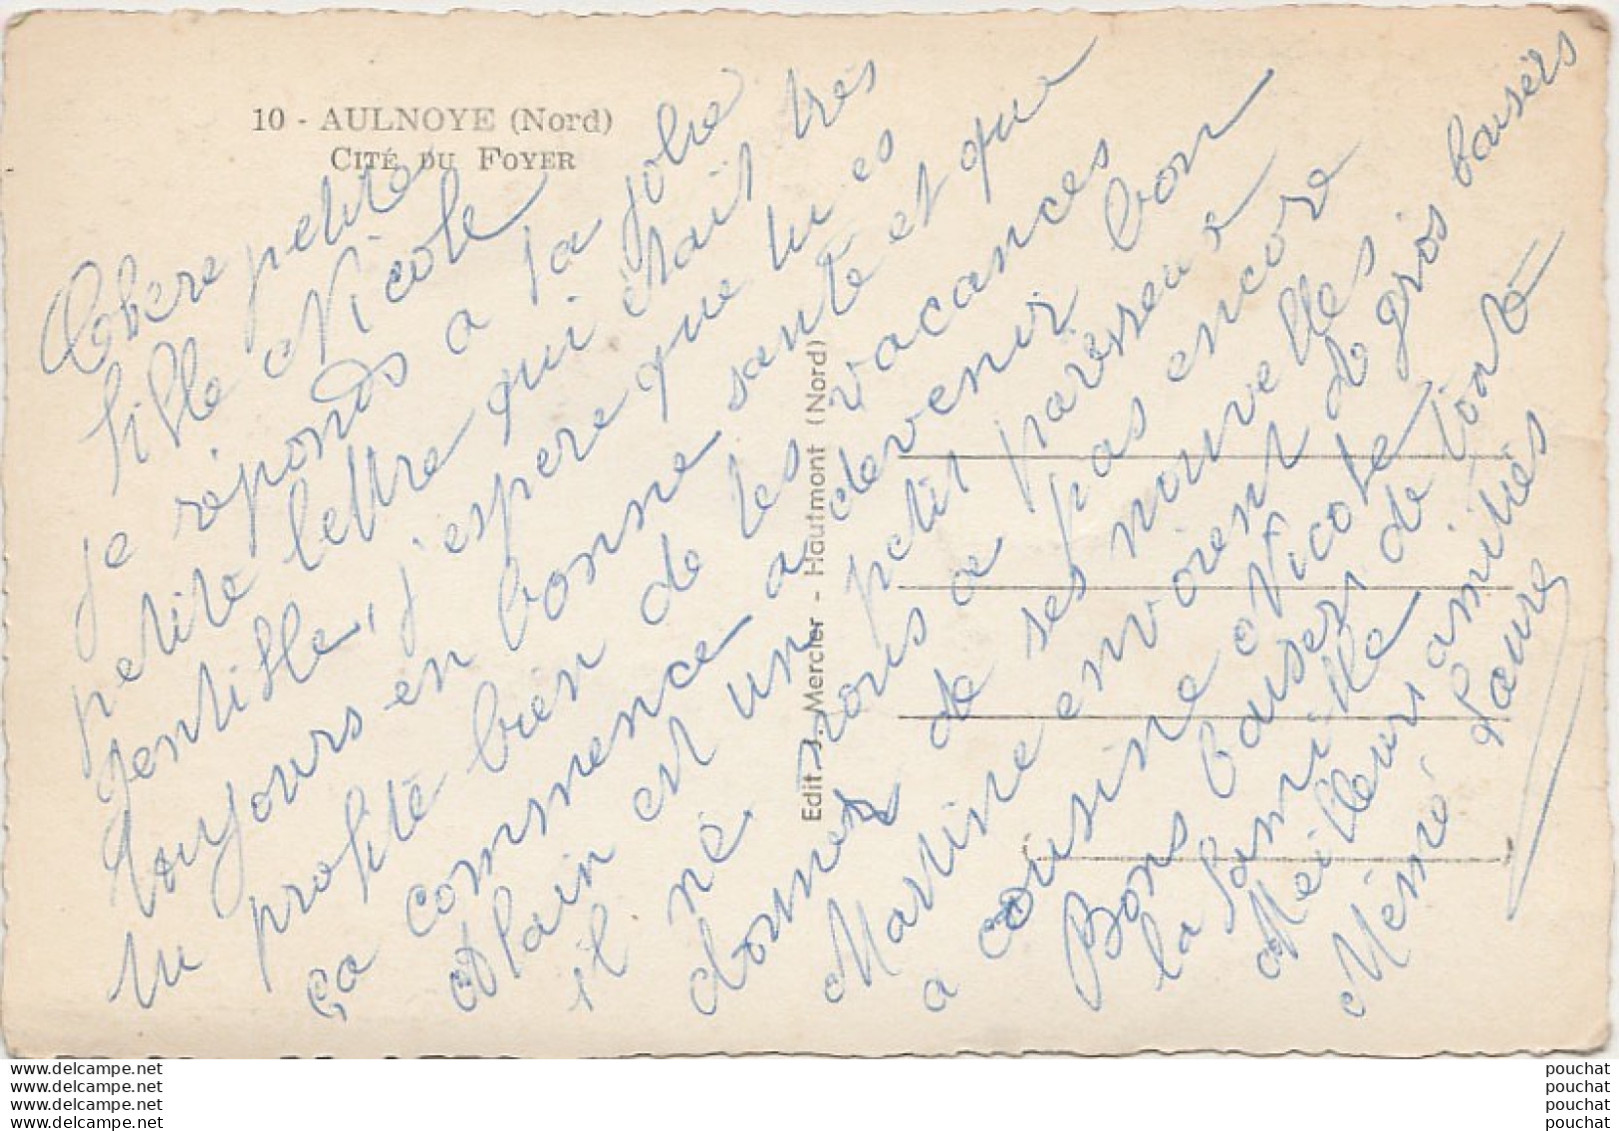 10 - AULNOYE (Nord)
CITÉ DU FOYER
Chere petite
fille Nicole
je réponds a ta jolie
petite lettre qui était très
gentille, j'espere que tu es
toujours en bonne santé et que
tu profite bien de tes vacances
ça commence a devenir bon
Alain est un petit paresseux
il ne nous a pas encore
donner de ses nouvelles
Martine envoient de gros baisers
a cousine Nicole
Bons baisers de toute
la famille
Meilleurs amitiés
Mémé Laure
Edit J. Mercier - Hautmont (Nord)
www.delcampe.net
www.delcampe.net
www.delcampe.net
www.delcampe.net
pouchat
pouchat
pouchat
pouchat